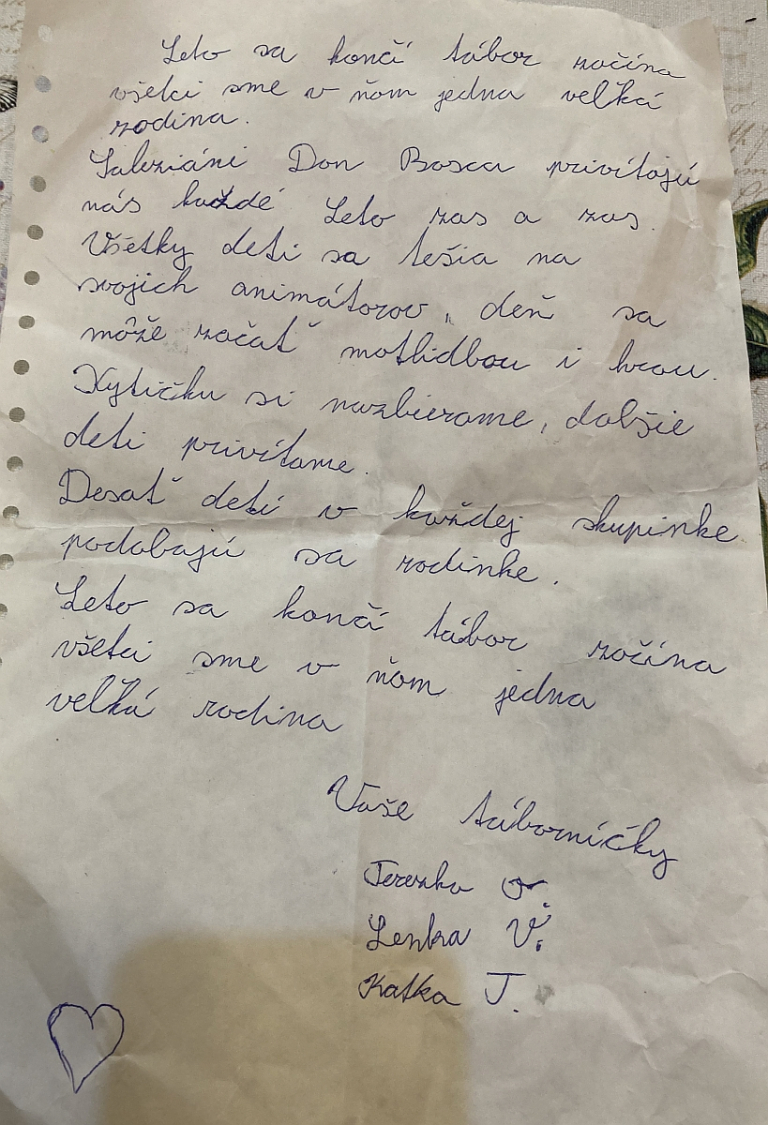 Leto sa končí tábor začína
všetci sme v ňom jedna veľká
rodina.
Saleziáni Don Bosca privítajú
nás každé Leto zas a zas.
Všetky deti sa tešia na
svojich animátorov, deň sa
môže začať motlidbou i hrou.
Kytičku si nazbierame, dalšie
deti privítame.
Desať detí v každej skupinke
podobajú sa rodinke.
Leto sa končí tábor začína
všetci sme v ňom jedna
veľká rodina
Vaše táborníčky
Terezka
Lenka V.
Katka J.